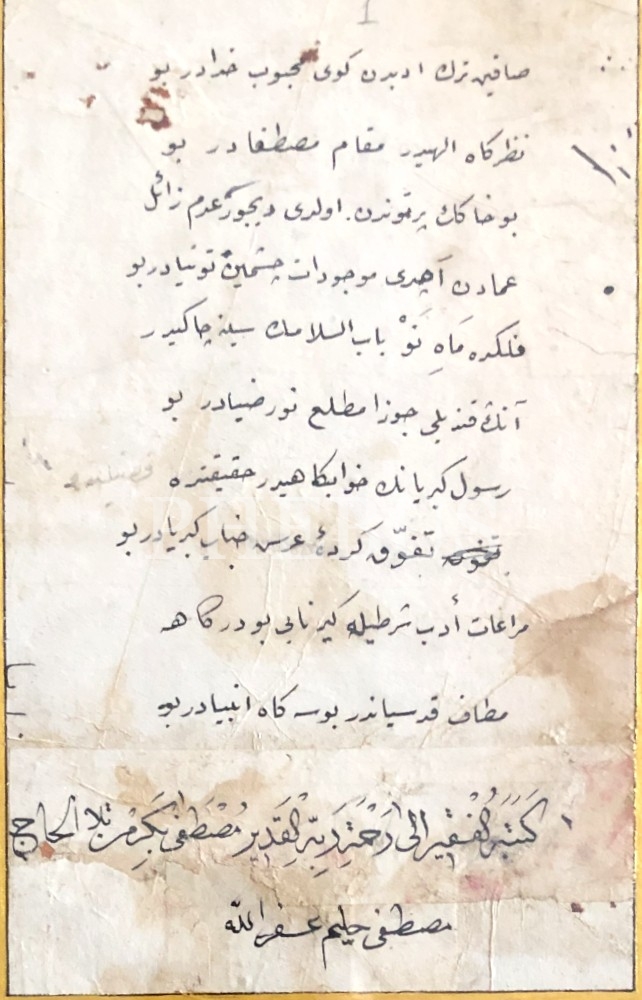 1
صاقین ترك ادبدن كوی محبوب خدادر بو
نظركاه الهیدر مقام مصطفادر بو
بو خاكك پرتوندن اولدی دیجور عدم زائل
عمادن آچدی موجودات چشمین توتیادر بو
فلكده مَاهِ نَوْ باب السلامك سینه چاكیدر
آنڭ قندیلی جوزا مطلع نور ضیادر بو
رسول كبریانك خوابكاهیدر حقیقتده
تفوّق كردهٔ عرس جناب كبریادر بو
مراعات أدب شرطیله كیر نابی بو دركاهه
مطاف قدسیاندر بوسه كاه انبیادر بو
كتبه الفقیر الی رحمة ربه القدیر مصطفی الحاج
مصطفی حلیم غفرالله